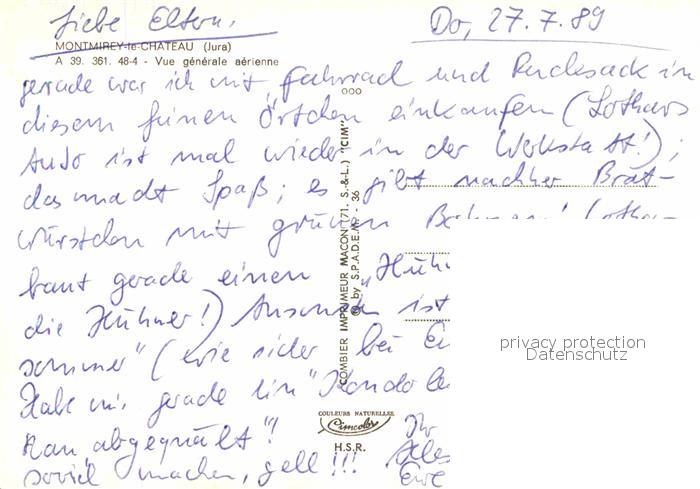 Liebe Eltern,
Do, 27.7.89
MONTMIREY-le-CHATEAU (Jura)
A 39. 361. 48-4 - Vue générale aérienne
gerade war ich mit Fahrrad und Rucksack in
diesem feinen Örtchen einkaufen (Lothars
Auto ist mal wieder in der Werkstatt!);
das macht Spaß; es gibt nachher Brat-
würstchen mit grünen
baut gerade einen "Hühn
die Hühner!) Ansonsten ist
sommer" (wie sicher bei Eu
Hab mir gerade ein
abgequält"!
soviel machen, gell!!!
Ihr
Alles
Eure
COMBIER IMPRIMEUR MACON (71. S.-&-L.) "CIM"
© by S.P.A.D.E.M. - 36
COULEURS NATURELLES
Cimcolor
H.S.R.
privacy protection
Datenschutz